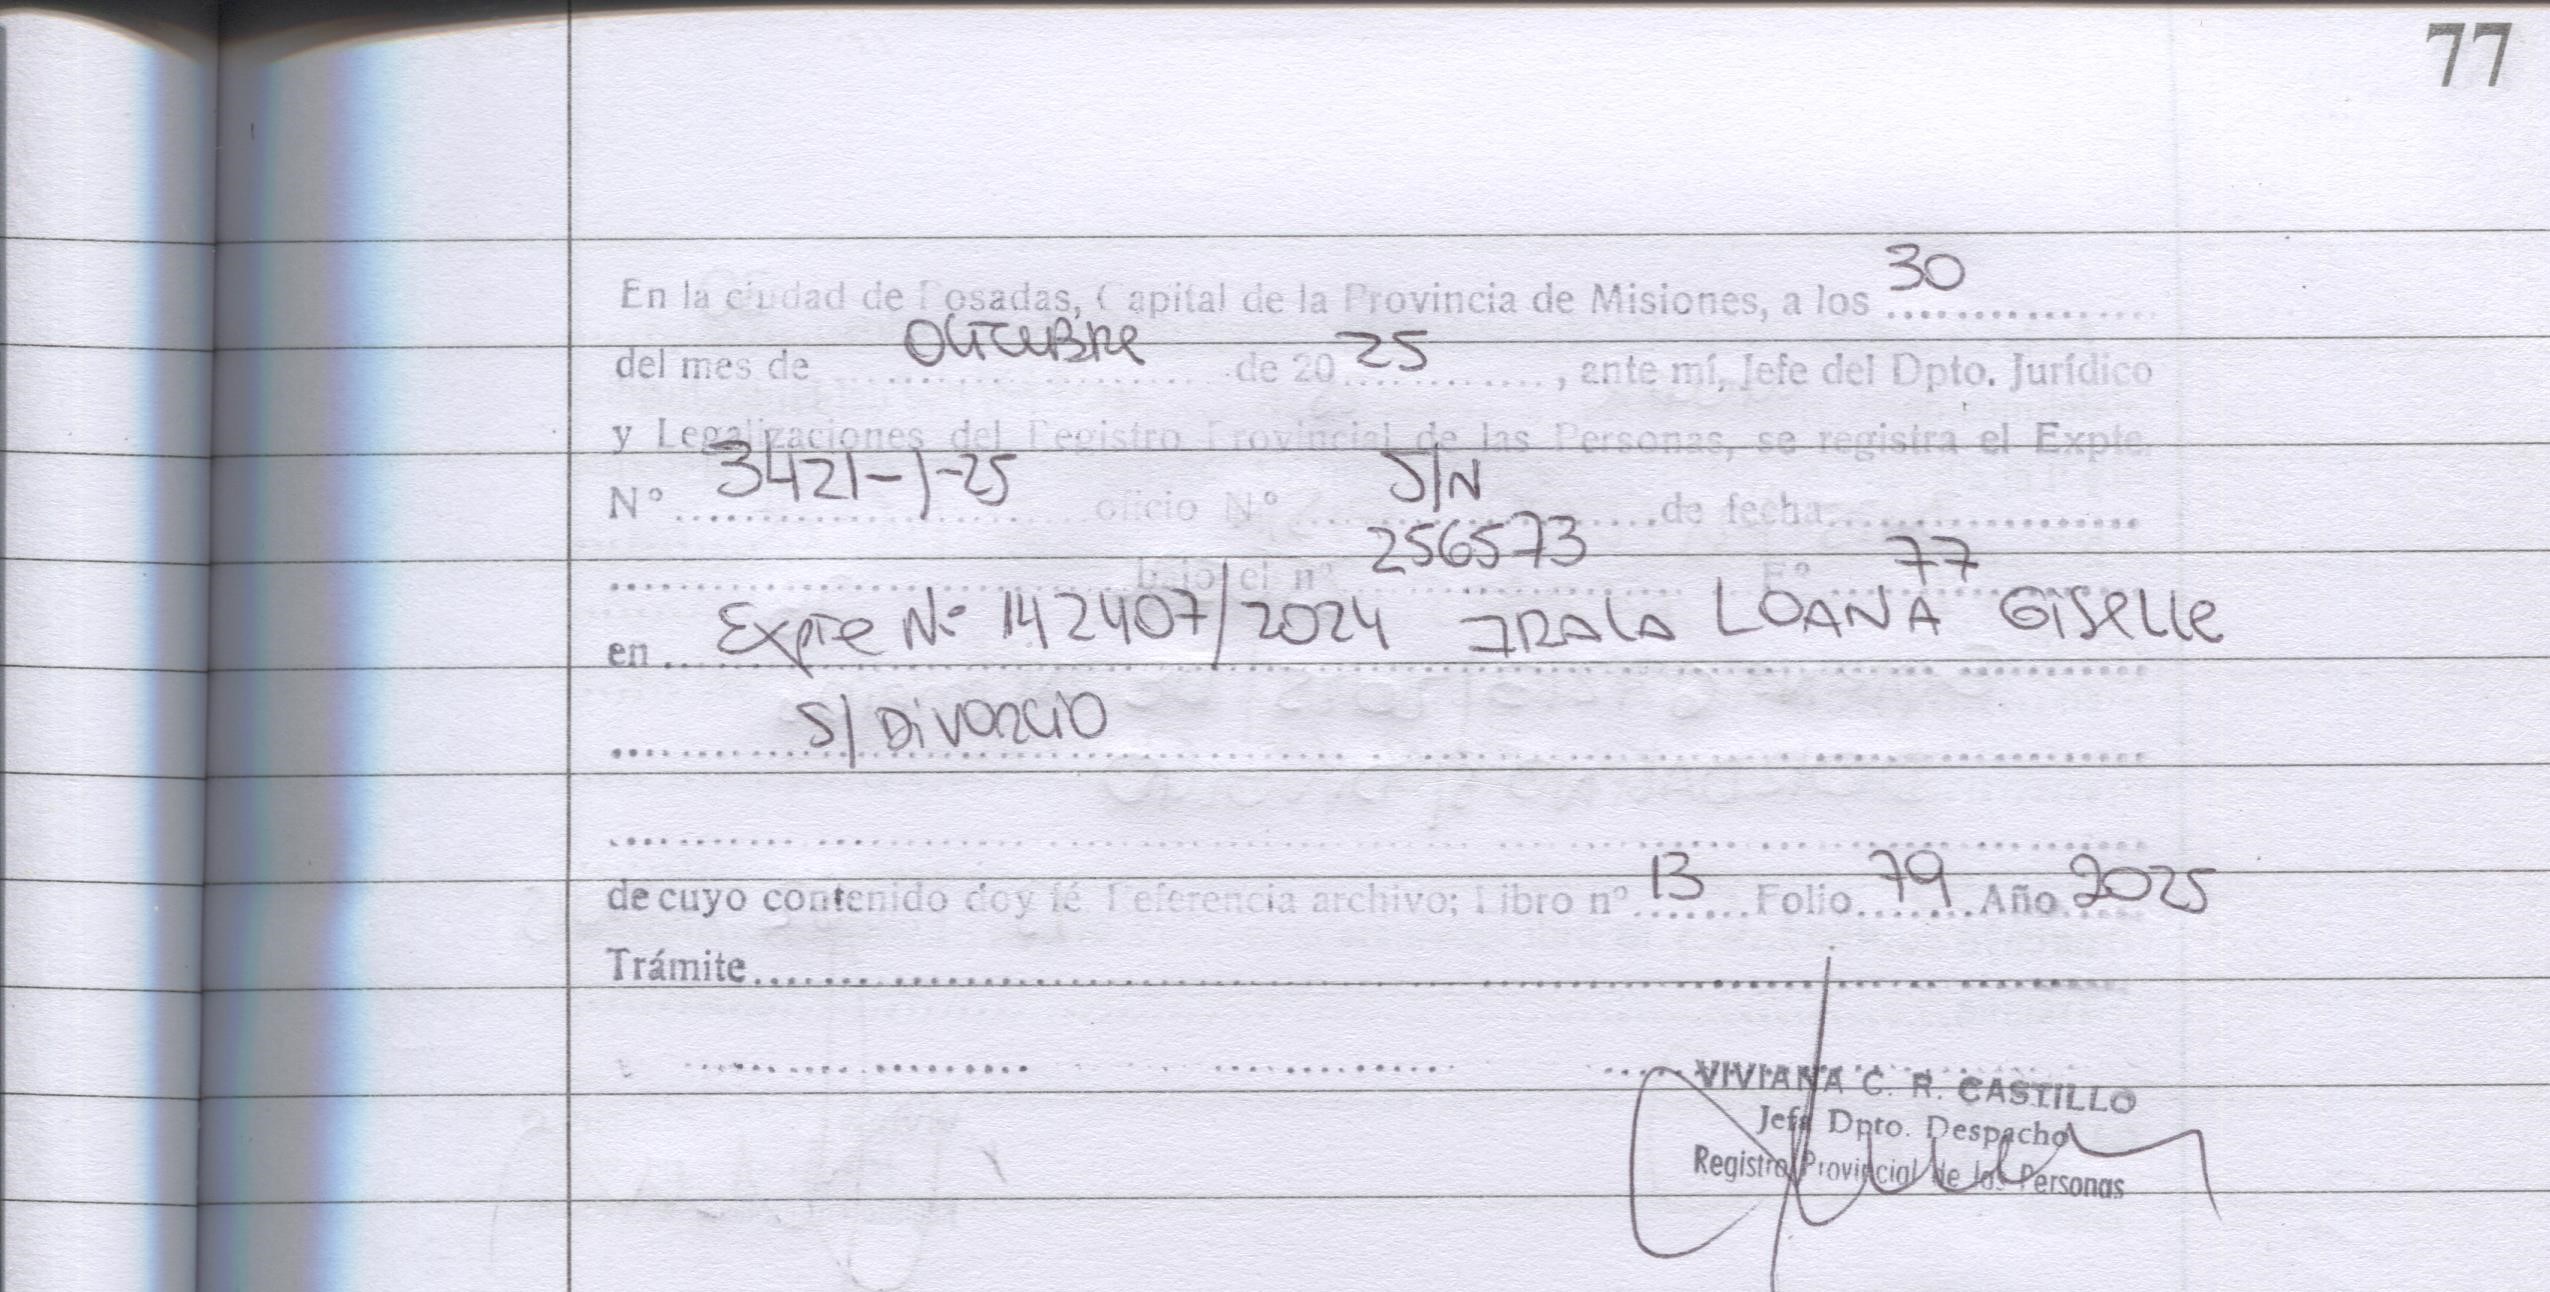 77
En la ciudad de Posadas, Capital de la Provincia de Misiones, a los 30
del mes de Octubre de 20 25, ante mí, Jefe del Dpto. Jurídico
y Legalizaciones del Registro Provincial de las Personas, se registra el Expte.
Nº 3421-J-25 oficio Nº S/N de fecha
bajo el nº 256573 Fº 77
en Expte Nº 142407/2024 IRALA LOANA GISELLE
S/ Divorcio
de cuyo contenido doy fé Referencia archivo; Libro nº 13 Folio 79 Año 2025
Trámite
VIVIANA C. R. CASTILLO
Jefa Dpto. Despacho
Registro Provincial de las Personas